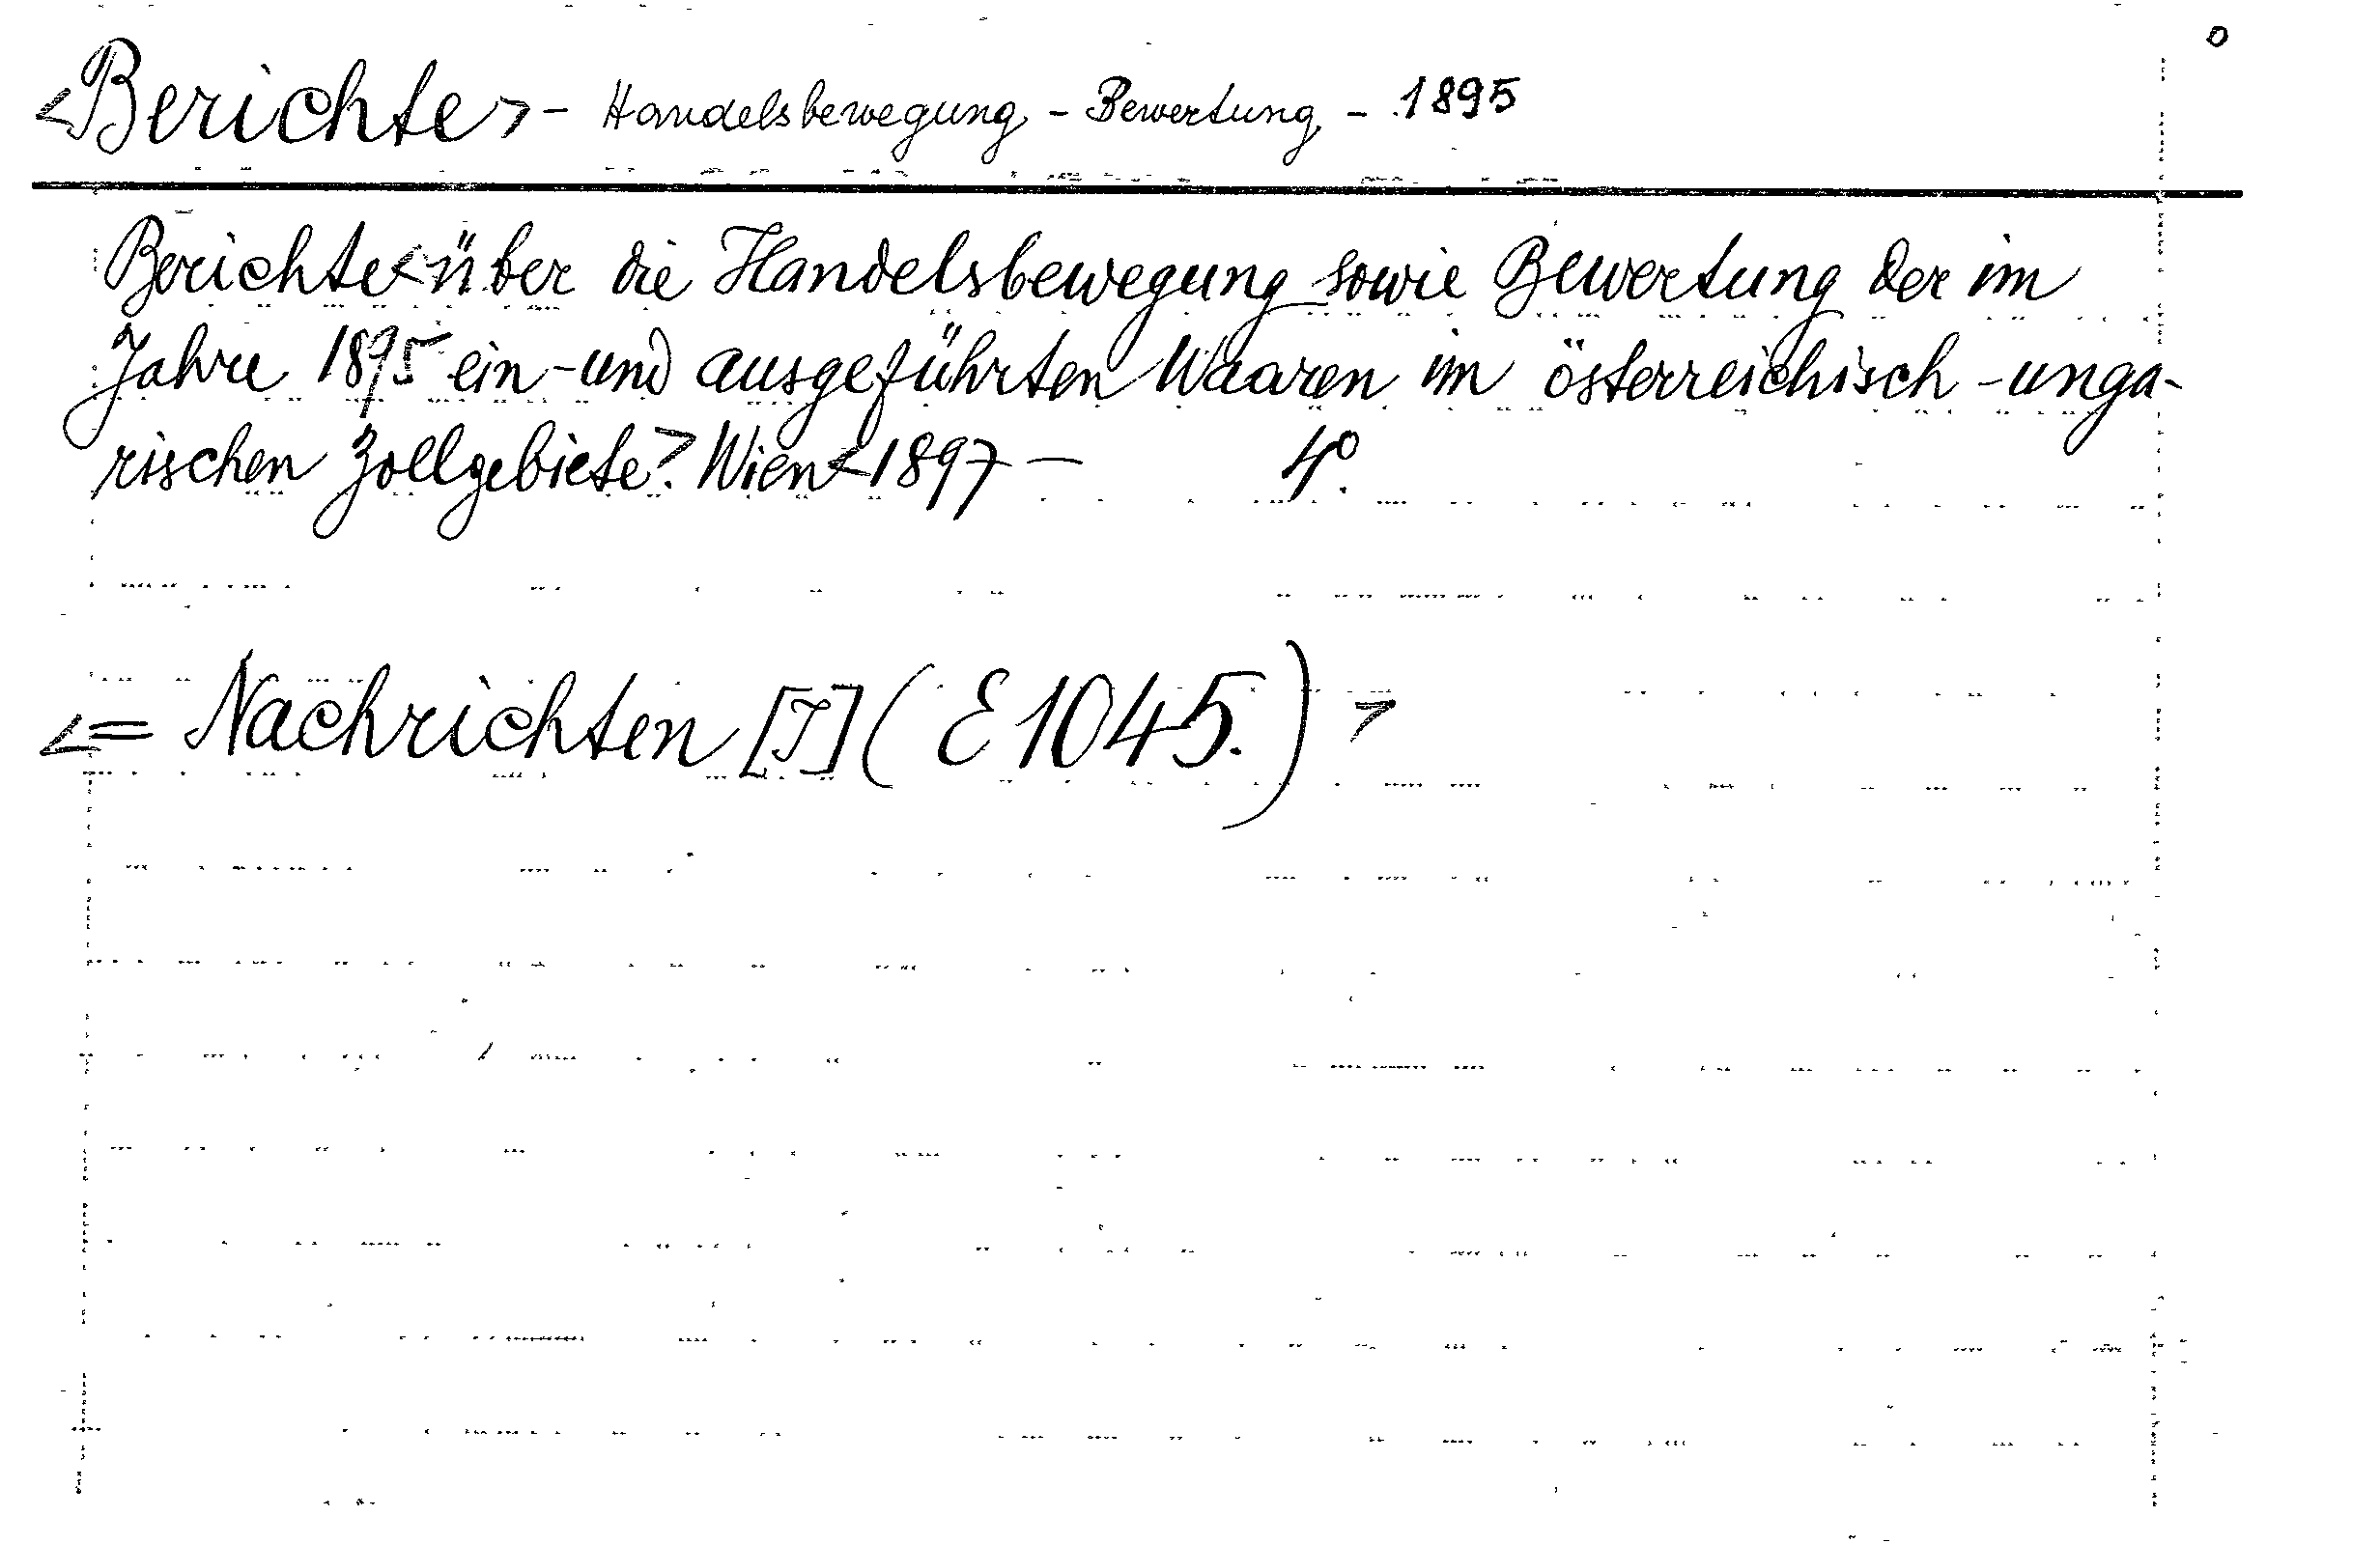 <Berichte> - Handelsbewegung - Bewertung - 1895
Berichte <über die Handelsbewegung sowie Bewertung der im
Jahre 1895 ein- und ausgeführten Waaren im österreichisch-unga-
rischen Zollgebiete.> Wien <1897 — 4°.
<= Nachrichten [I] (E 1045.) >